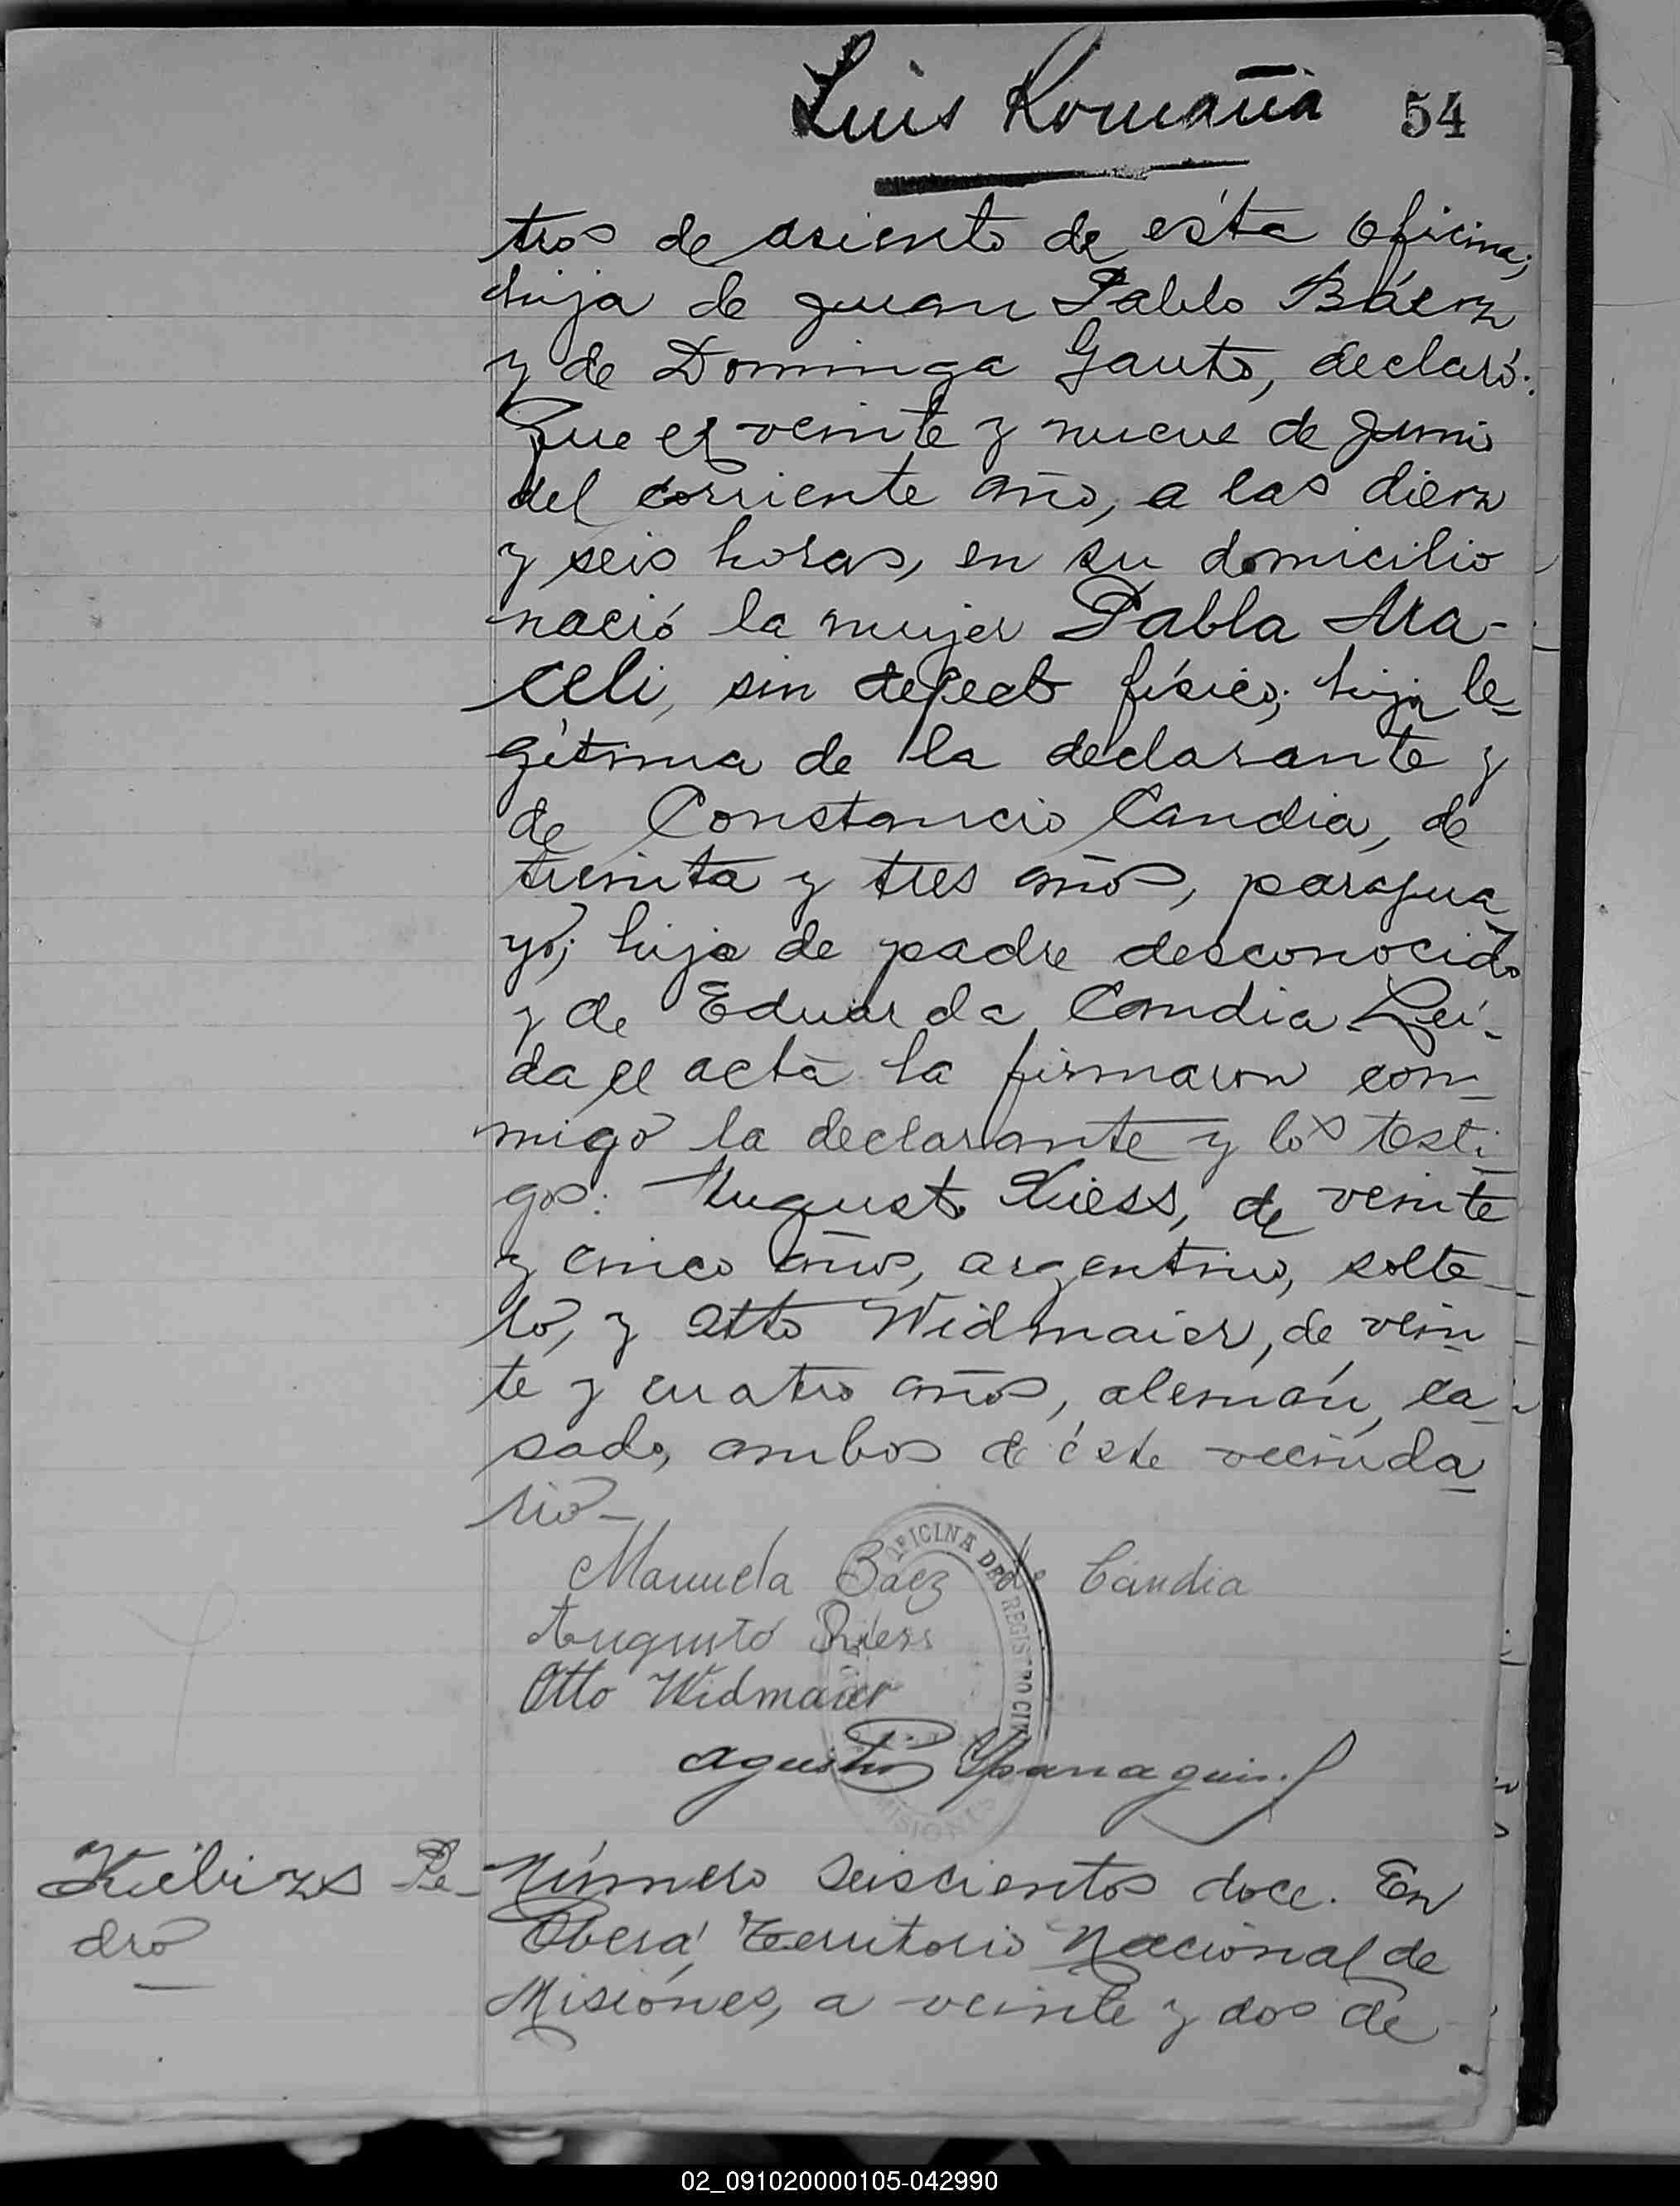 Luis Romaña 54
tros de asiento de ésta oficina;
hija de Juan Pablo Báez
y de Dominga Gauto, declaró:
Que el veinte y nueve de Junio
del corriente año, a las diez
y seis horas, en su domicilio
nació la mujer Pabla Ara-
celi, sin defecto físico; hija le-
gítima de la declarante y
de Constancio Candia, de
treinta y tres años, paragua
yo; hijo de padre desconocido
y de Eduarda Candia Leí-
da el acta la firmaron con-
migo la declarante y los testi-
gos: Augusto Kiess, de veinte
y cinco años, argentino, solte-
ro, y Otto Widmaier, de vein-
te y cuatro años, alemán, ca-
sado, ambos de éste vecinda-
rio-
Manuela Baez de Candia
Augusto
Otto Widmaier
OFICINA DEL REGISTRO CIVIL
MISIONES
Agustin
Pe-
dro
Número seiscientos doce. En
Oberá, Territorio Nacional de
Misiones, a veinte y dos de
02_091020000105-042990